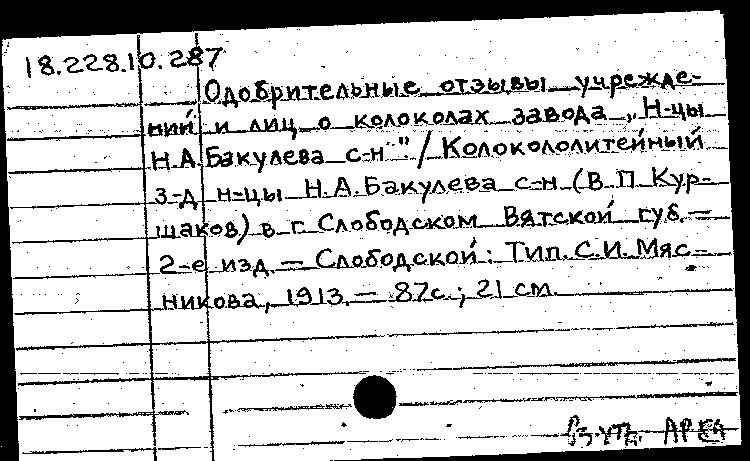 18.228.10.287
Одобрительные отзывы учрежде-
ний и лиц о колоколах завода „Н-цы
Н.А.Бакулева с-н" / Колокололитейный
з-д н-цы Н.А.Бакулева с-н (В.П.Кур-
шаков) в г. Слободском Вятской губ. —
2-е изд. — Слободской: Тип. С.И. Мяс-
никова, 1913. — 87с.; 21 см.